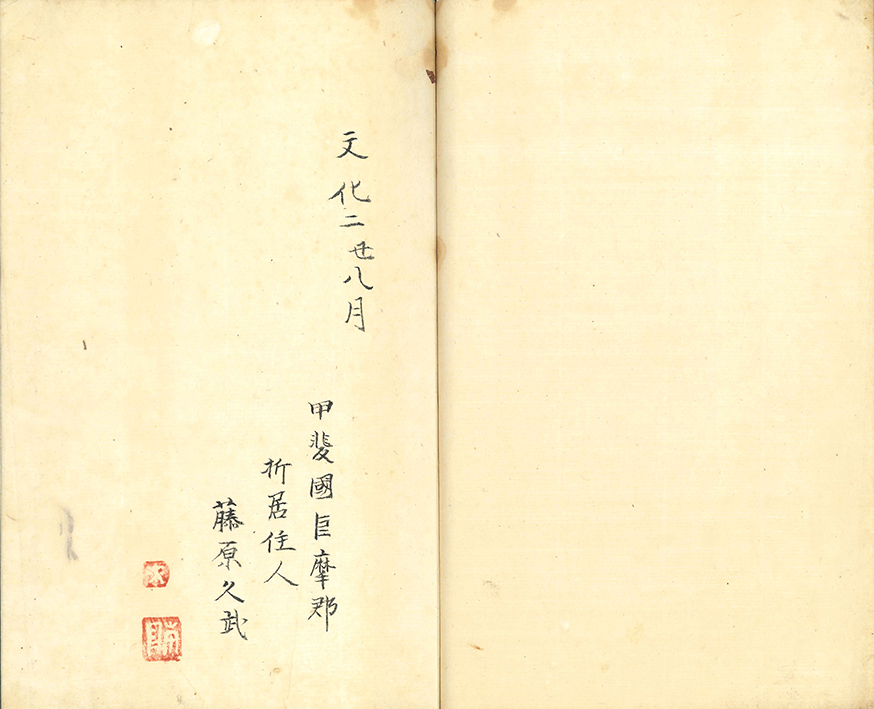 文化二丑八月
甲斐國巨摩郡
折居住人
藤原久武